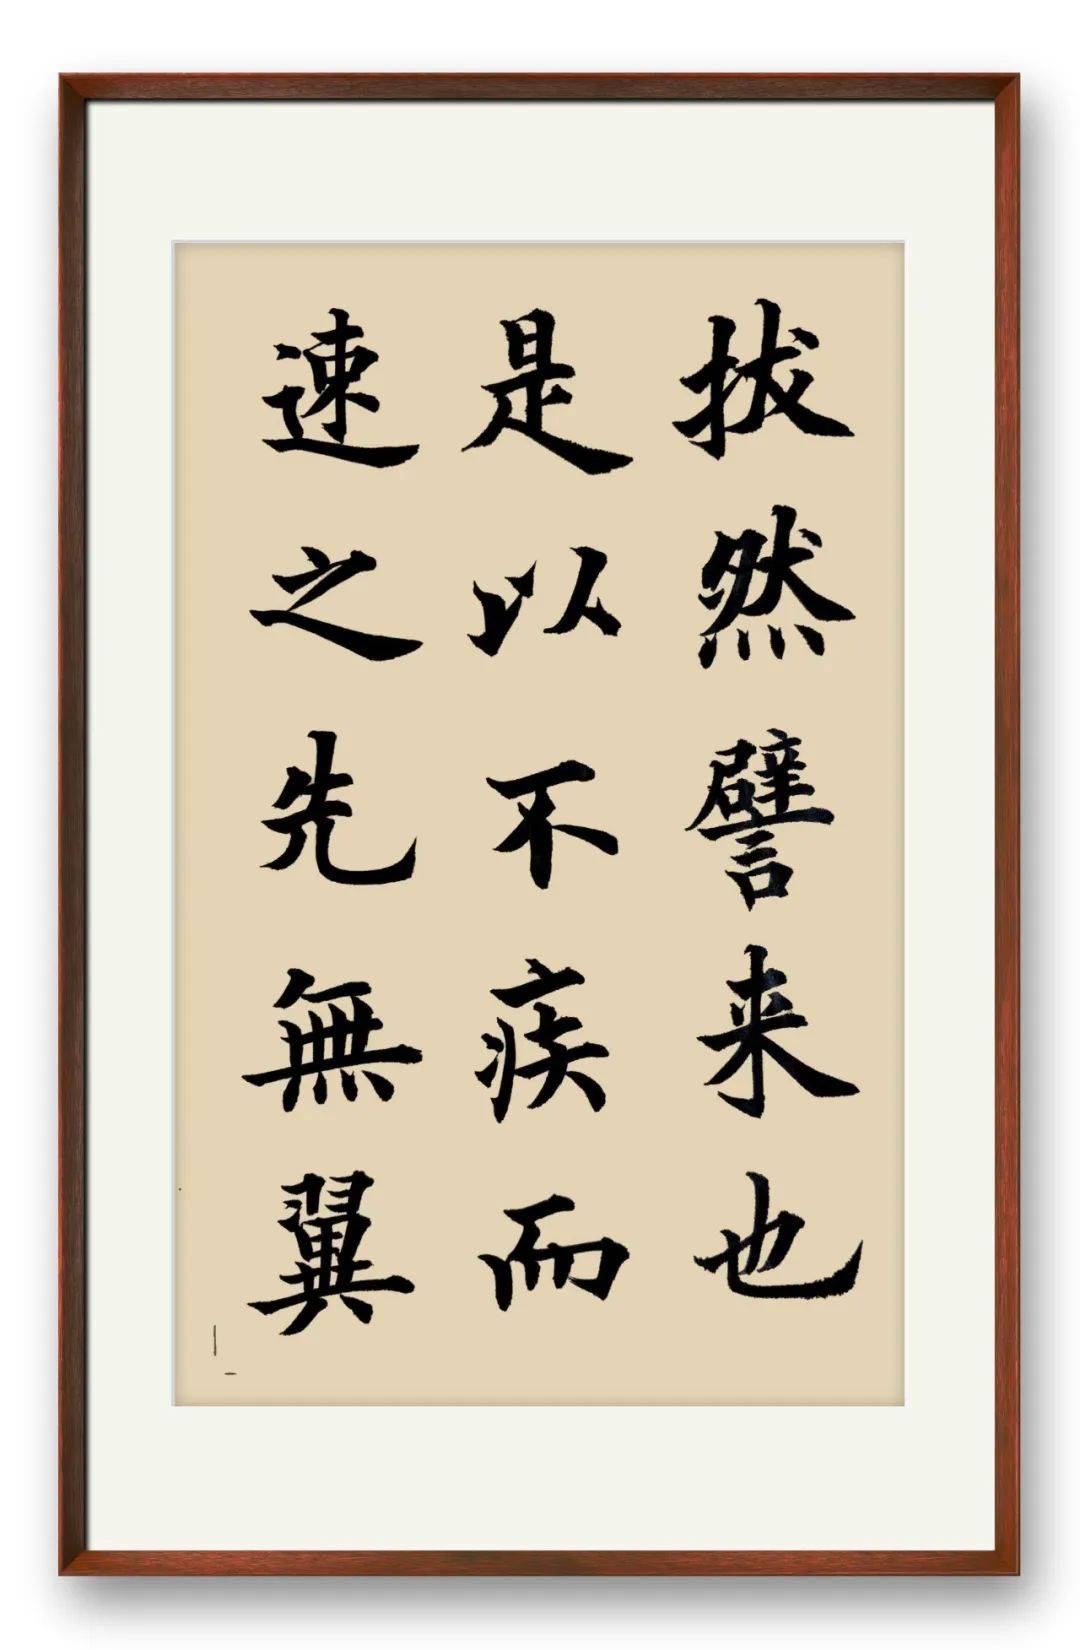 拔然譬来也
是以不疾而
速之先無翼